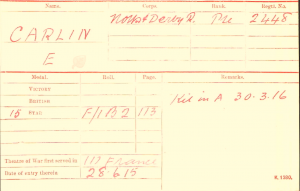 Name. Corps. Rank. Regtl. No.
CARLIN Notts & Derby R Pte 2448
E
Medal. Roll. Page. Remarks.
VICTORY
BRITISH
15 STAR F/1 B2 113 Kil in A 30-3.16
Theatre of War first served in (1) France
Date of entry therein 28.6.15